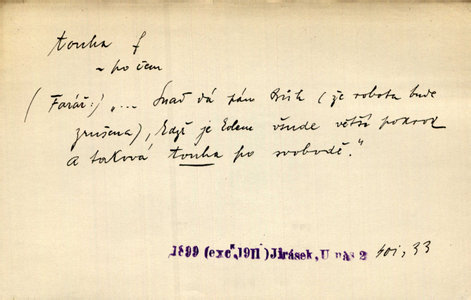 touha f
~ po čem
(Farář:) „... Snad dá pán Bůh (že robota bude
zrušena), když je kolem všude větší pokrok
a taková touha po svobodě."
1899 (exc. 1911) Jirásek, U nás 2 101,33